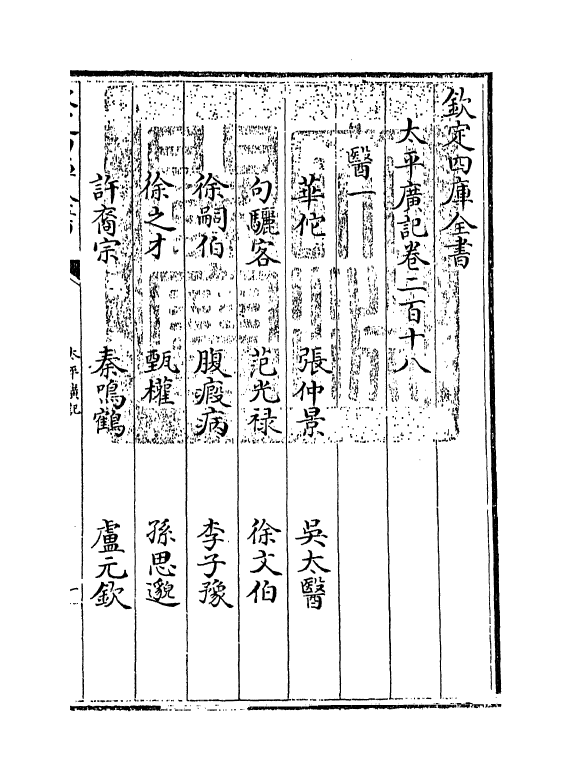 欽定四庫全書
太平廣記卷二百十八
醫一
華佗 張仲景 吳太醫
句驪客 范光禄 徐文伯
徐嗣伯 腹瘕病 李子豫
徐之才 甄權 孫思邈
許裔宗 秦鳴鶴 盧元欽
太平廣記
一